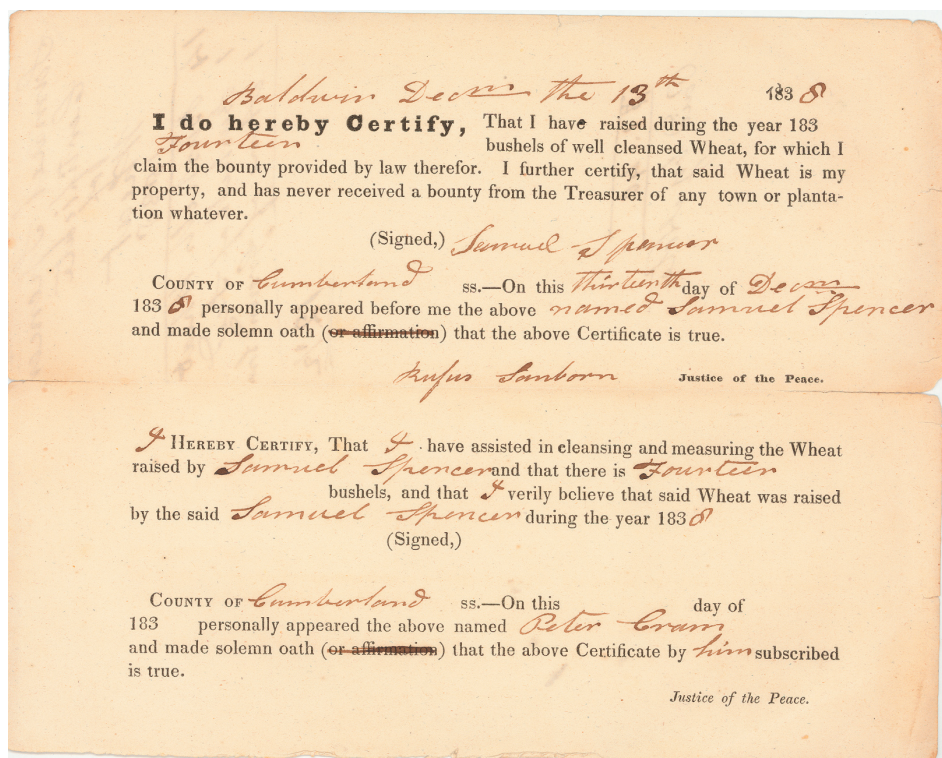 Baldwin Decm the 13th 1838
I do hereby Certify, That I have raised during the year 183
Fourteen bushels of well cleansed Wheat, for which I
claim the bounty provided by law therefor. I further certify, that said Wheat is my
property, and has never received a bounty from the Treasurer of any town or planta-
tion whatever.
(Signed,) Samuel Spencer
COUNTY OF Cumberland ss.—On this thirteenth day of Decm
1838 personally appeared before me the above named Samuel Spencer
and made solemn oath (or affirmation) that the above Certificate is true.
Rufus Sanborn Justice of the Peace.
I HEREBY CERTIFY, That I have assisted in cleansing and measuring the Wheat
raised by Samuel Spencer and that there is Fourteen
bushels, and that I verily believe that said Wheat was raised
by the said Samuel Spencer during the year 1838
(Signed,)
COUNTY OF Cumberland ss.—On this day of
183 personally appeared the above named Peter Cram
and made solemn oath (or affirmation) that the above Certificate by him subscribed
is true.
Justice of the Peace.